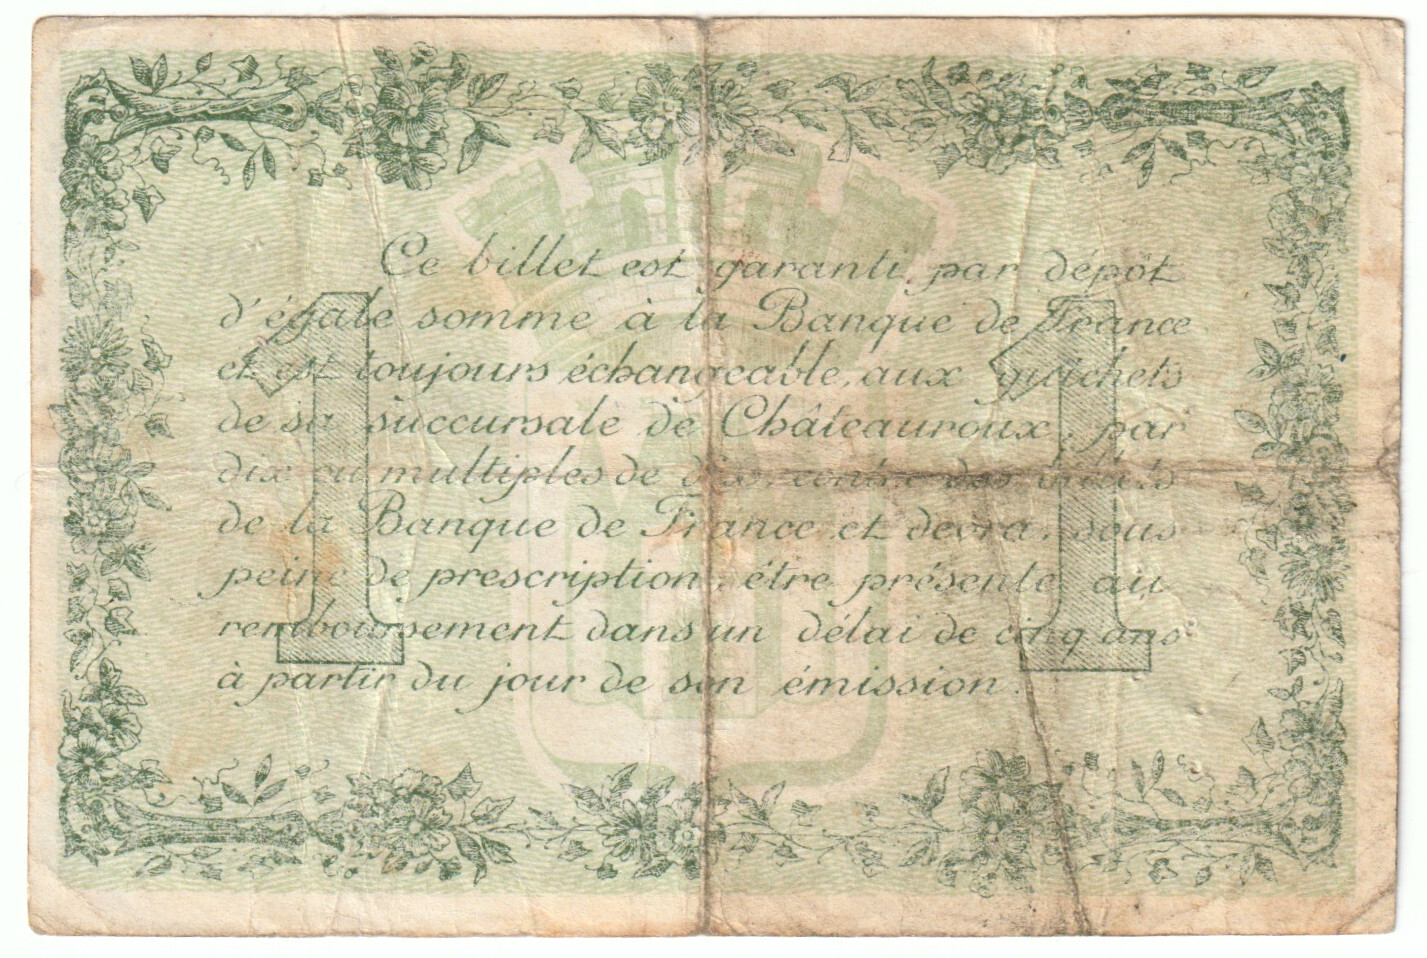 Ce billet est garanti, par dépôt
d'égale somme à la Banque de France
et est toujours échangeable, aux guichets
de sa succursale de Châteauroux, par
dix ou multiples de dix, contre des billets
de la Banque de France et devra, sous
peine de prescription, être présenté au
remboursement dans un délai de cinq ans
à partir du jour de son émission.
1 1